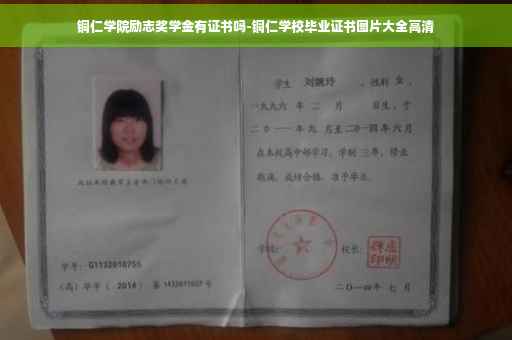 铜仁学院励志奖学金有证书吗-铜仁学校毕业证书图片大全高清
学生 刘婉玲 ，性别 女 ，
一九九六 年 二 月 日生，于
二〇一一年九 月至二〇一四年 六 月
在本校高中部学习，学制 三年，修业
期满，成绩合格，准予毕业。
学号：G1132010755
（高）毕字（ 2014 ）第 1432011037 号
学校：
校长：
二〇一四年 七 月